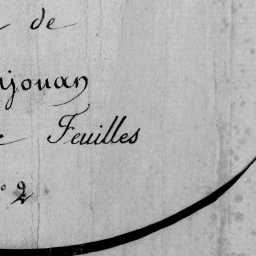 de
njouan
Feuilles
° 2